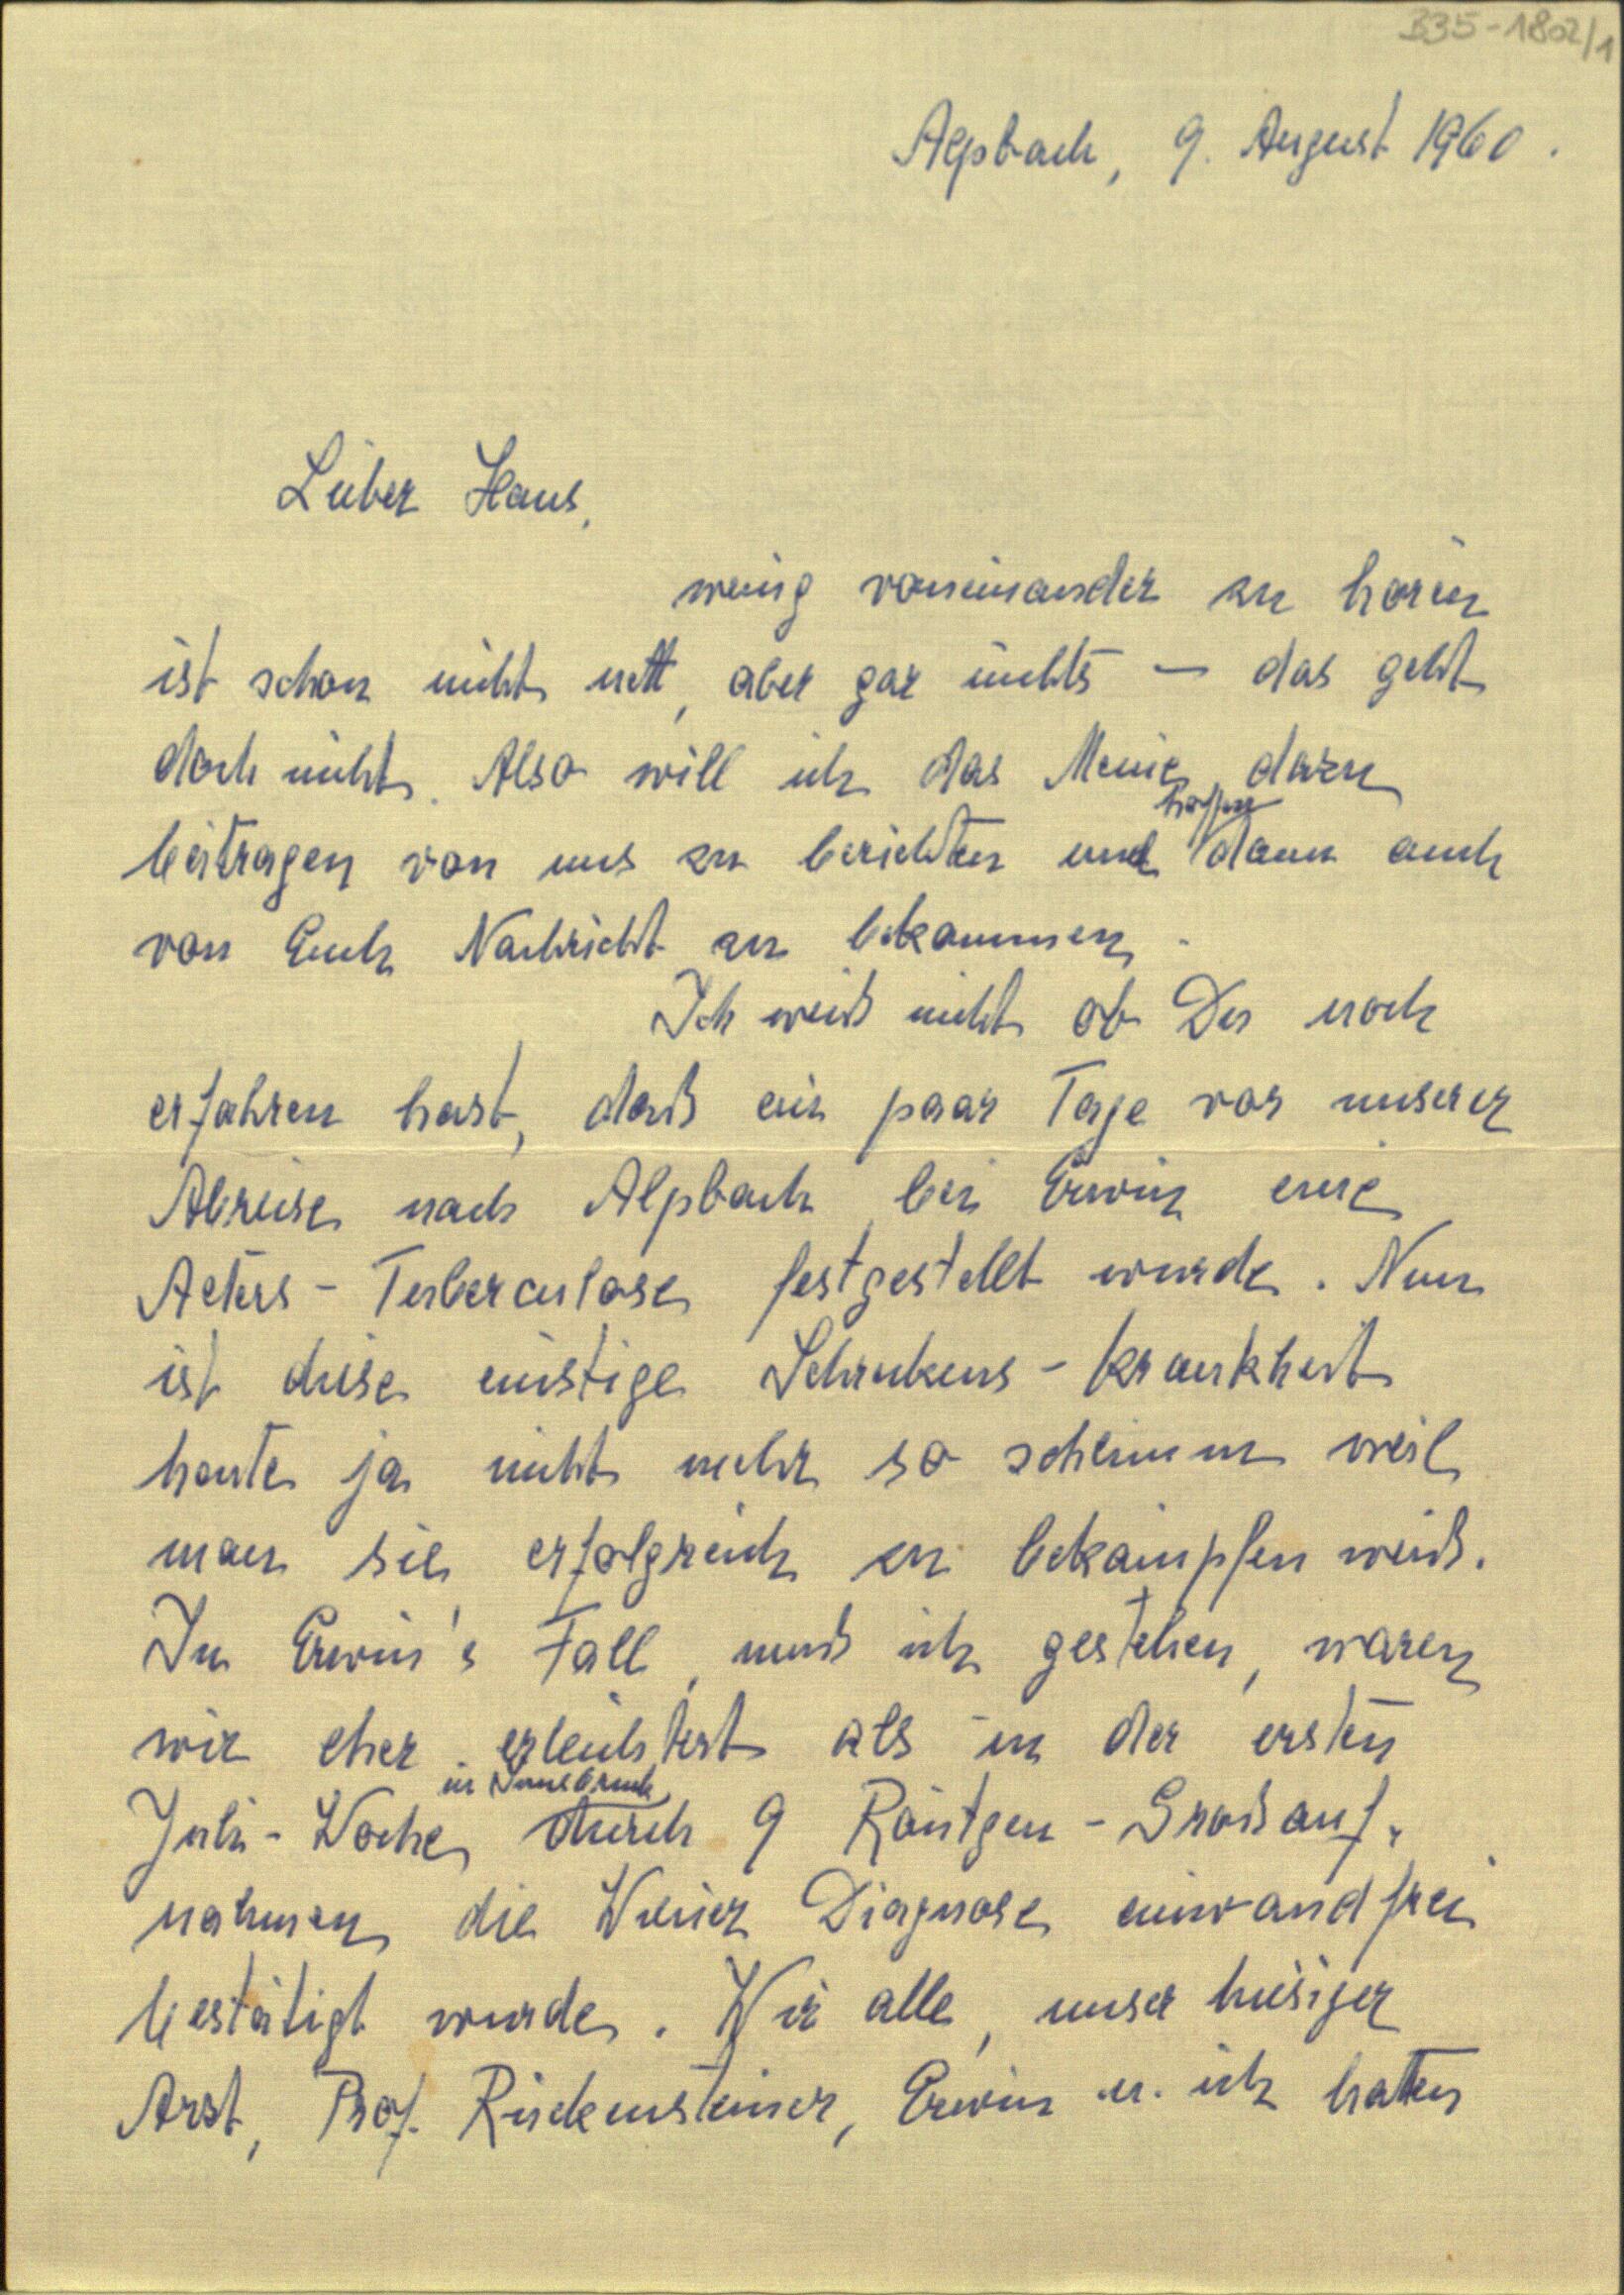 B35-1802/1
Alpbach, 9. August 1960.
Lieber Hans,
wenig voneinander zu hören
ist schon nicht nett, aber gar nichts — das geht
doch nicht. Also will ich das Meine dazu
hoffe
beitragen von uns zu berichten und dann auch
von Euch Nachricht zu bekommen.
Ich weiß nicht ob Du noch
erfahren hast, daß ein paar Tage vor unserer
Abreise nach Alpbach bei Erwin eine
Alters-Tuberculose festgestellt wurde. Nun
ist diese einstige Schreckens-Krankheit
heute ja nicht mehr so schlimm weil
man sie erfolgreich zu bekämpfen weiß.
In Erwin's Fall, muß ich gestehen, waren
wir eher erleichtert als in der ersten
in Innsbruck
Juli-Woche durch 9 Röntgen-Großauf-
nahmen die Wiener Diagnose einwandfrei
bestätigt wurde. Wir alle, unser hiesiger
Arzt, Prof. Rückensteiner, Erwin u. ich hatten